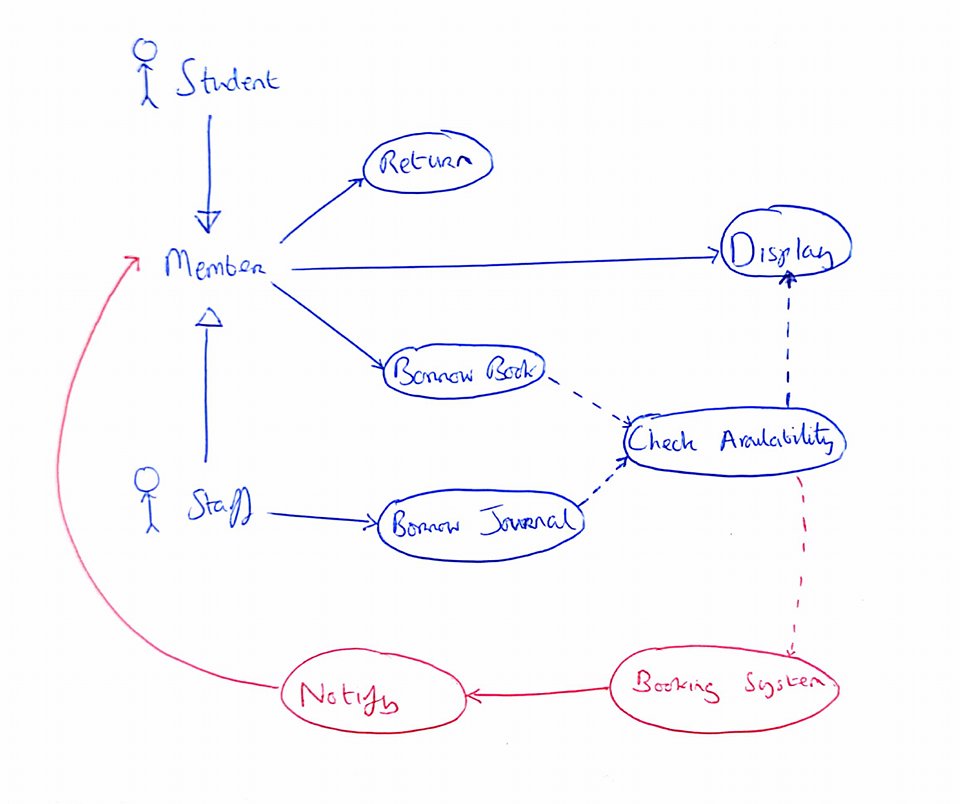 Student
Return
Member
Display
Borrow Book
Check Availability
Staff
Borrow Journal
Notify
Booking System